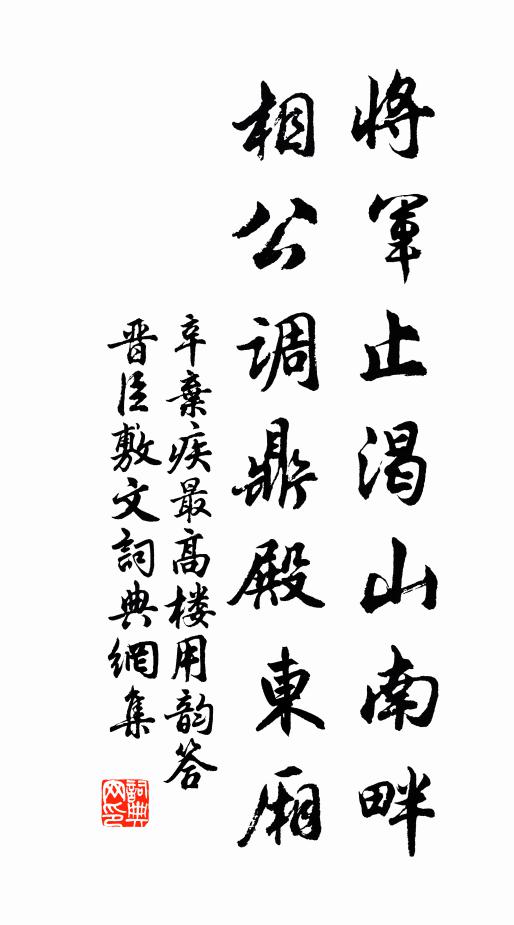 將軍止渴山南畔
相公調鼎殿東厢
辛棄疾最高楼用韵答
晋臣敷文詞典網集
詞典网印